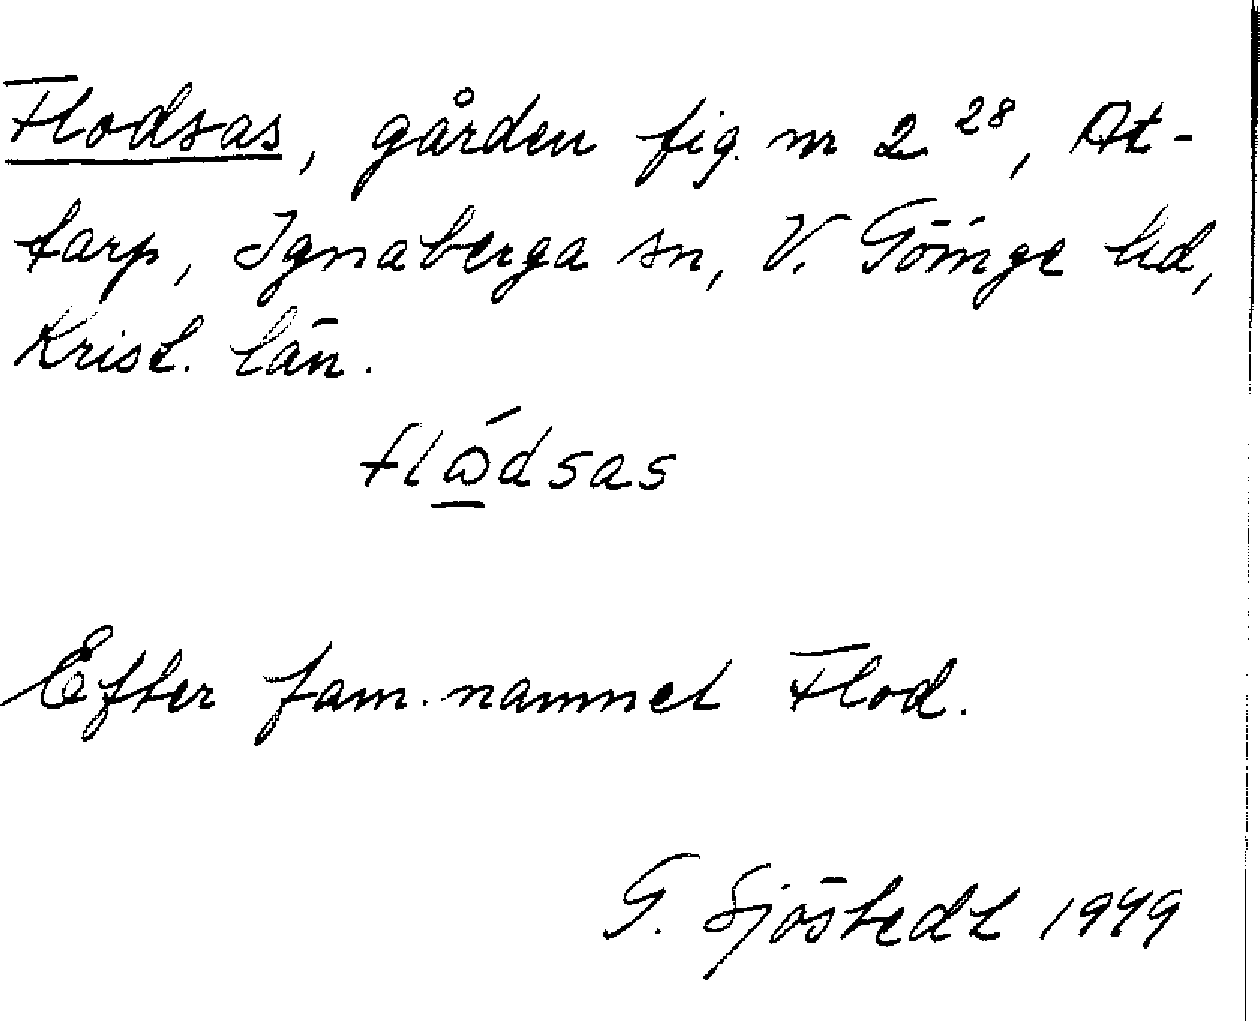 Flodsas, gården fig. nr 2 28, At-
tarp, Ignaberga sn, V. Göinge hd,
Krist. län.
flώdsas
Efter fam. namnet Flod.
G. Sjöstedt 1949